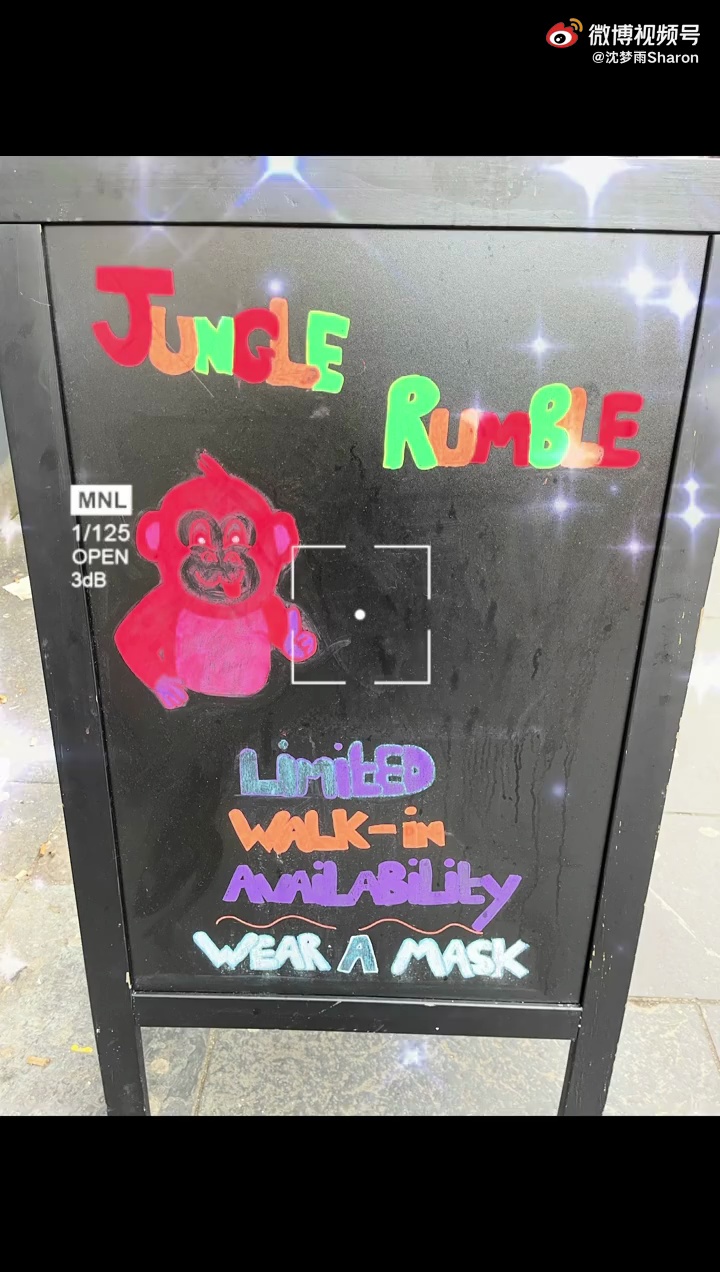 微博视频号
@沈梦雨Sharon
JUNGLE
RUMBLE
MNL
1/125
OPEN
3dB
LiMitED
WALK-in
AVAiLABiLity
WEAR A MASK